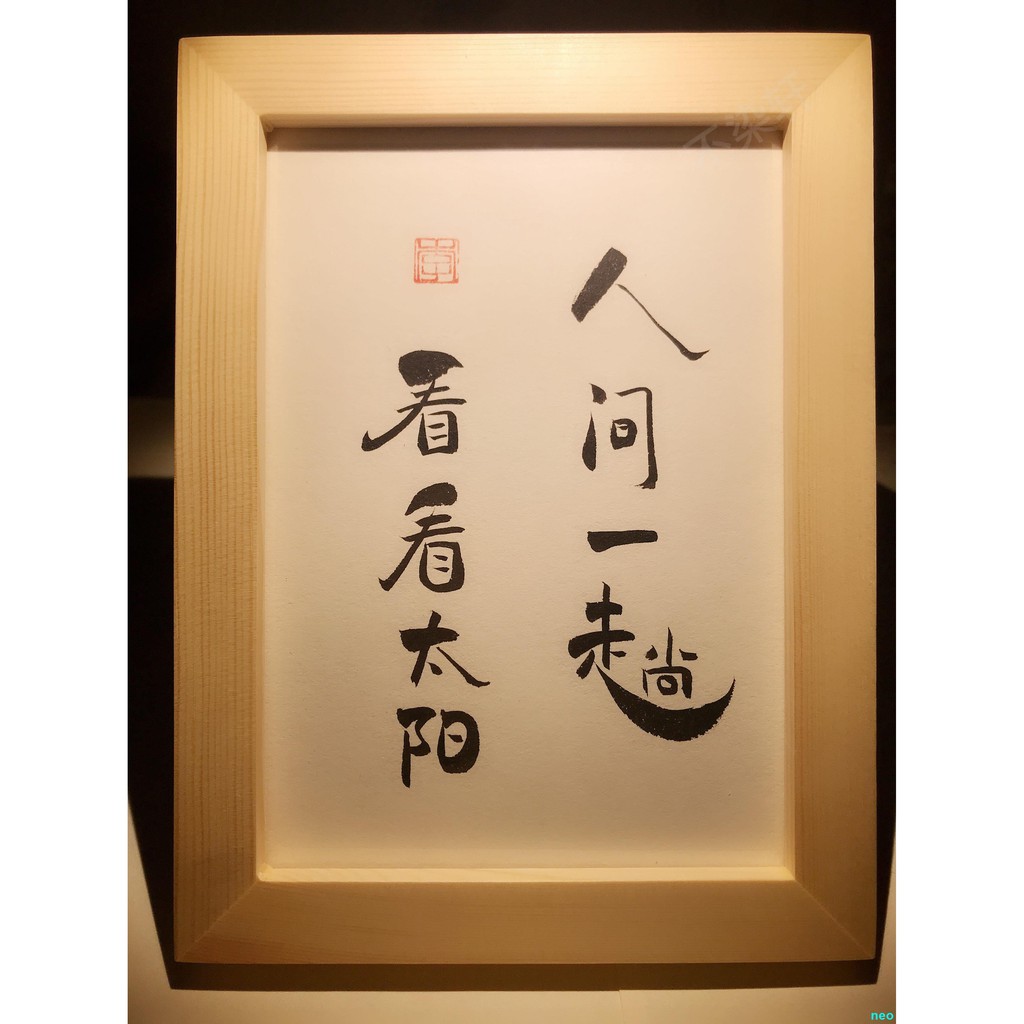 人间一趟
看看太阳
neo